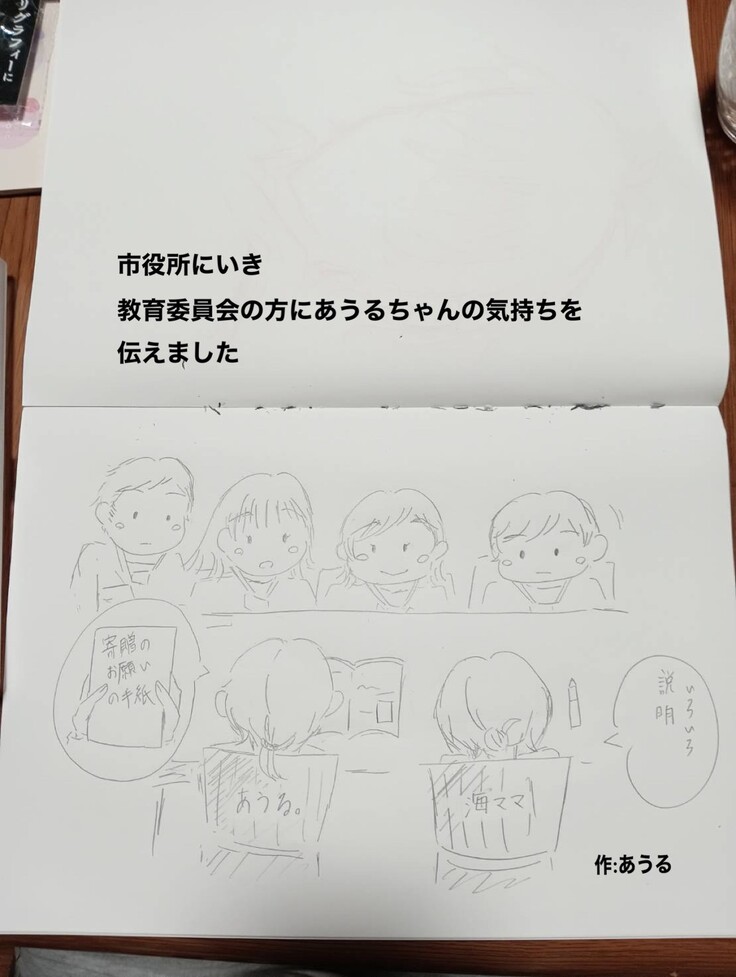 リグラフィーに
市役所にいき
教育委員会の方にあうるちゃんの気持ちを
伝えました
寄贈の
お願い
の手紙
いろいろ
説明
あうる。
海ママ
作:あうる